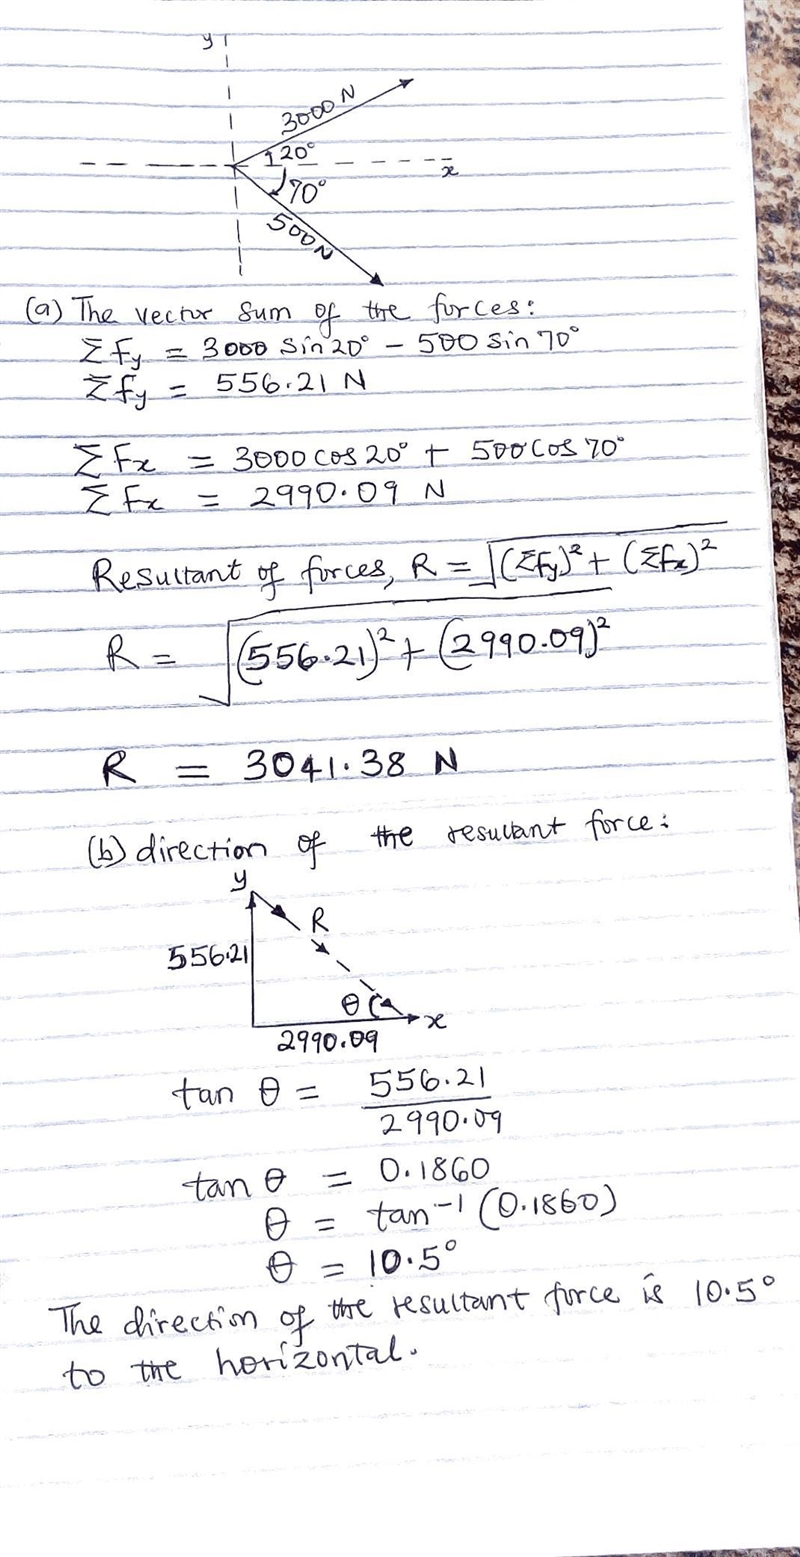 y
3000 N
20°
x
70°
500N
(a) The vector sum of the forces:
Σfy = 3000 Sin 20° - 500 sin 70°
Σfy = 556.21 N
ΣFx = 3000 cos 20° + 500 Cos 70°
ΣFx = 2990.09 N
Resultant of forces, R = √(Σfy)² + (Σfx)²
R = √(556.21)² + (2990.09)²
R = 3041.38 N
(b) direction of the resultant force:
y
R
556.21
θ
x
2990.09
tan θ = 556.21
2990.09
tan θ = 0.1860
θ = tan⁻¹ (0.1860)
θ = 10.5°
The direction of the resultant force is 10.5°
to the horizontal.